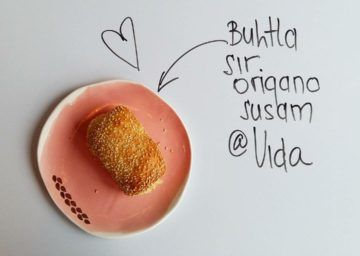 Buhtla
sir
origano
susam
@Vida